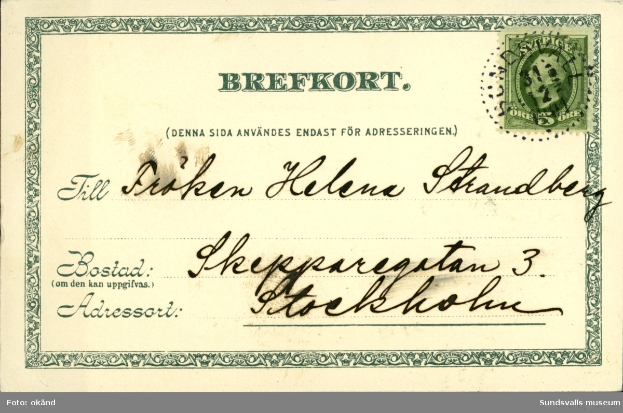 BREFKORT.
(DENNA SIDA ANVÄNDES ENDAST FÖR ADRESSERINGEN.)
SVERIGE
ÖRE 5 ÖRE
Till Fröken Helena Strandberg
Bostad: Skepparegatan 3.
(om den kan uppgifvas.)
Adressort: Stockholm
Foto: okänd
Sundsvalls museum